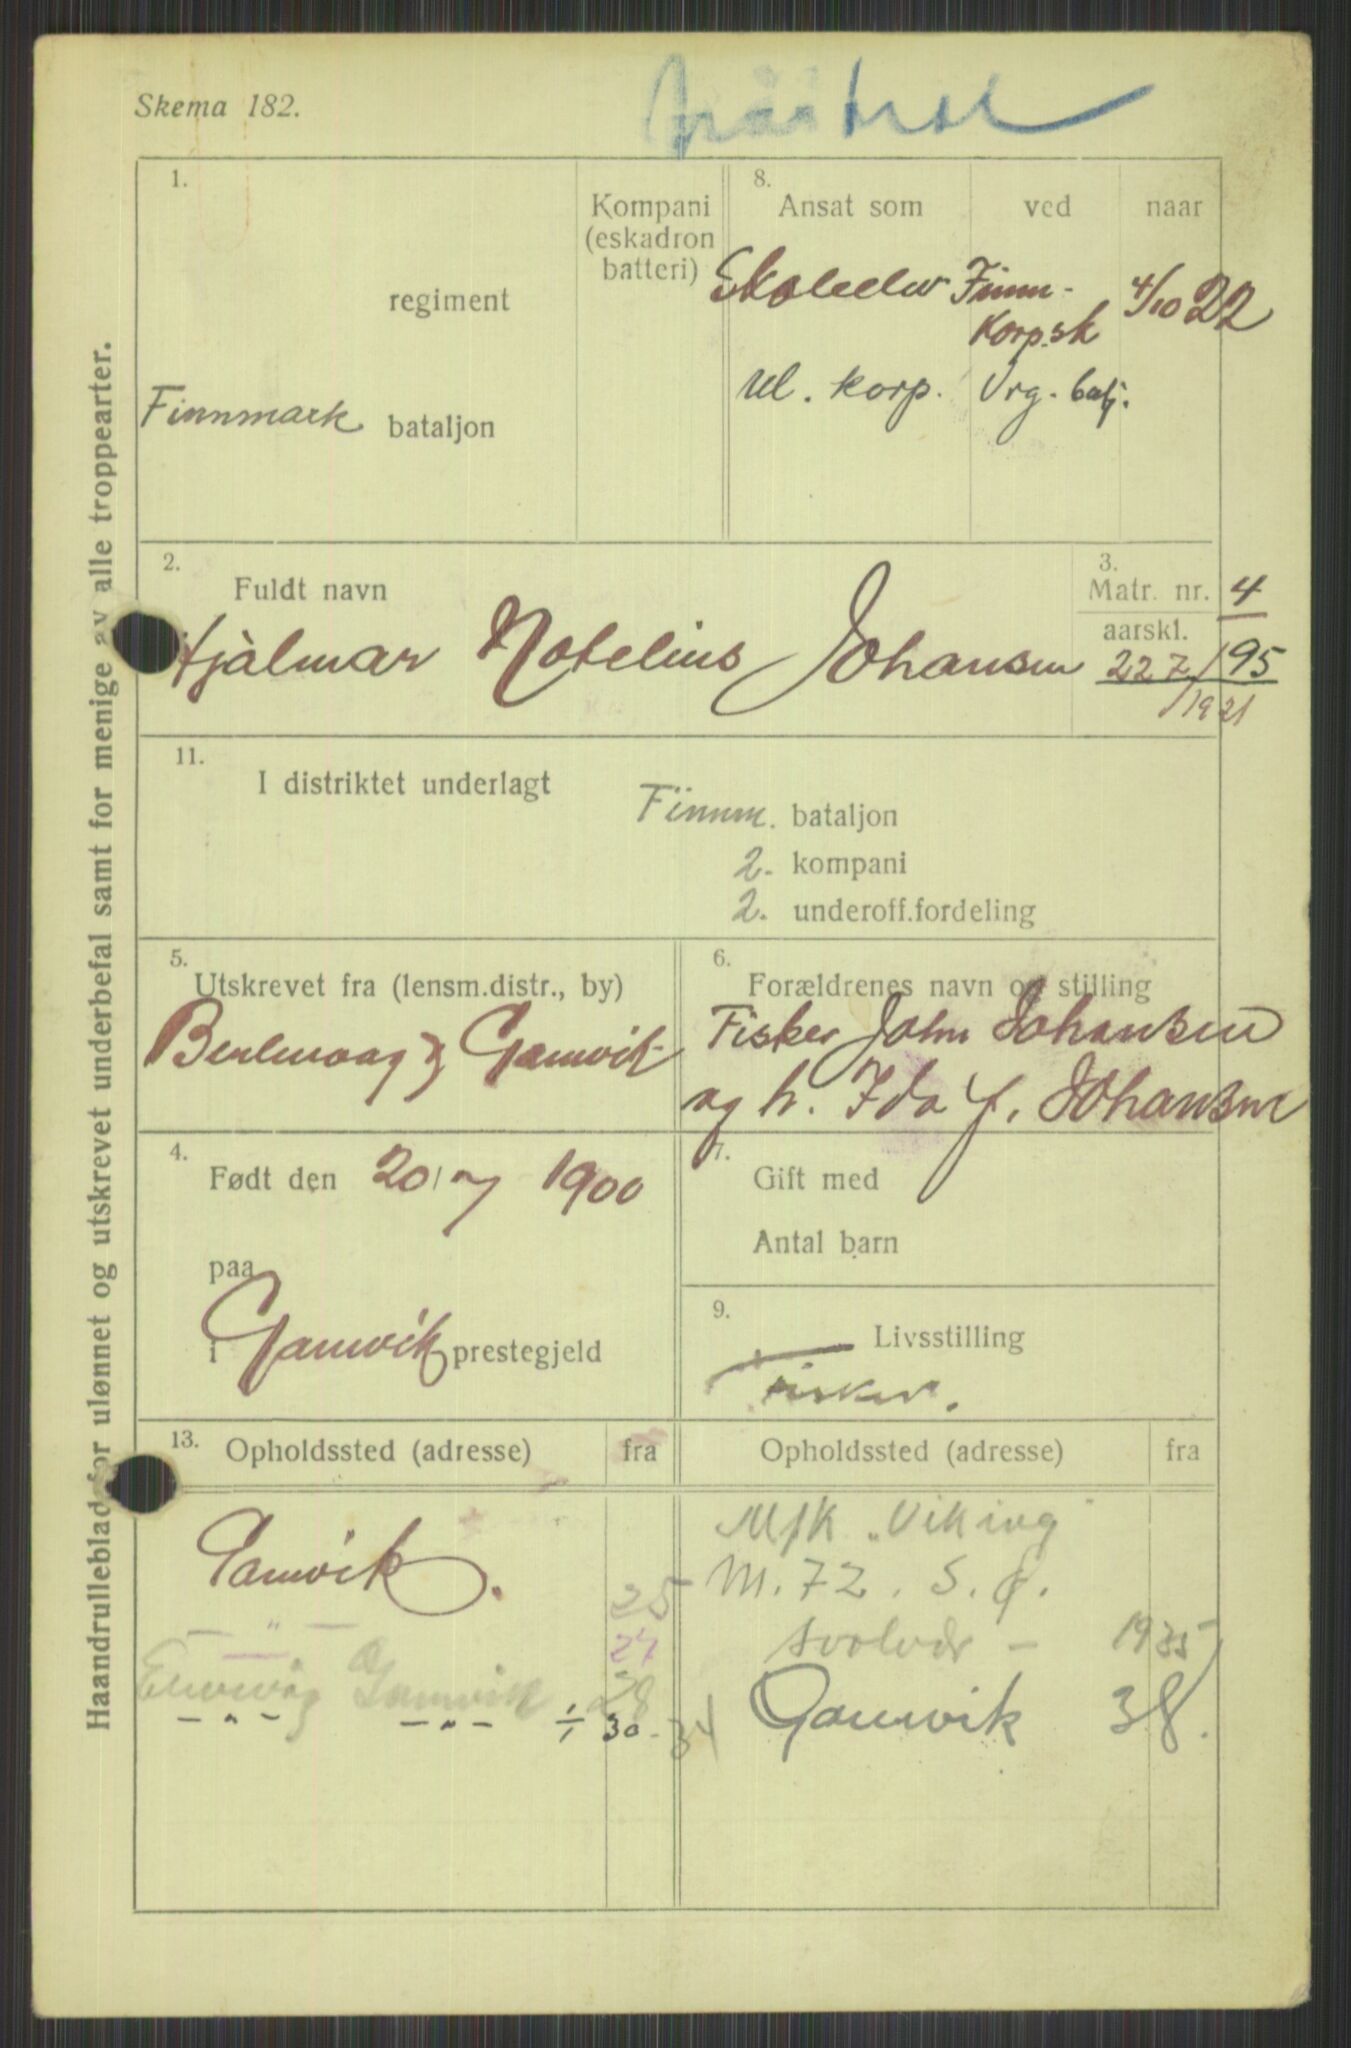 Skema 182.
1.
regiment
Finnmark bataljon
Kompani
(eskadron
batteri)
8.
Ansat som ved naar
Skoleelev Finnm- 4/10 22
Korp.sk
Ul. korp. Vrg. batj.
2.
Fuldt navn
Hjalmar Notelius Johansen
3.
Matr. nr. 4
aarskl.
227/95
/1921
11.
I distriktet underlagt
Finnm. bataljon
2. kompani
2. underoff.fordeling
5.
Utskrevet fra (lensm.distr., by)
Berlevaag & Gamvik
6.
Forældrenes navn og stilling
Fisker John Johansen
og h. Ida f. Johansen
4.
Født den 20/ 1900
paa
i Gamvik prestegjeld
7.
Gift med
Antal barn
9.
Livsstilling
Fisker.
13.
Opholdssted (adresse) fra
Gamvik.
25
— " — 27
Gamvik 28
- " - - " - ÷ 30 - 34
Opholdssted (adresse) fra
M/K „Viking"
M. 72. S. Ø.
Svolvær - 1935
Gamvik 38.
Haandrulleblad for ulønnet og utskrevet underbefal samt for menige av alle troppearter.